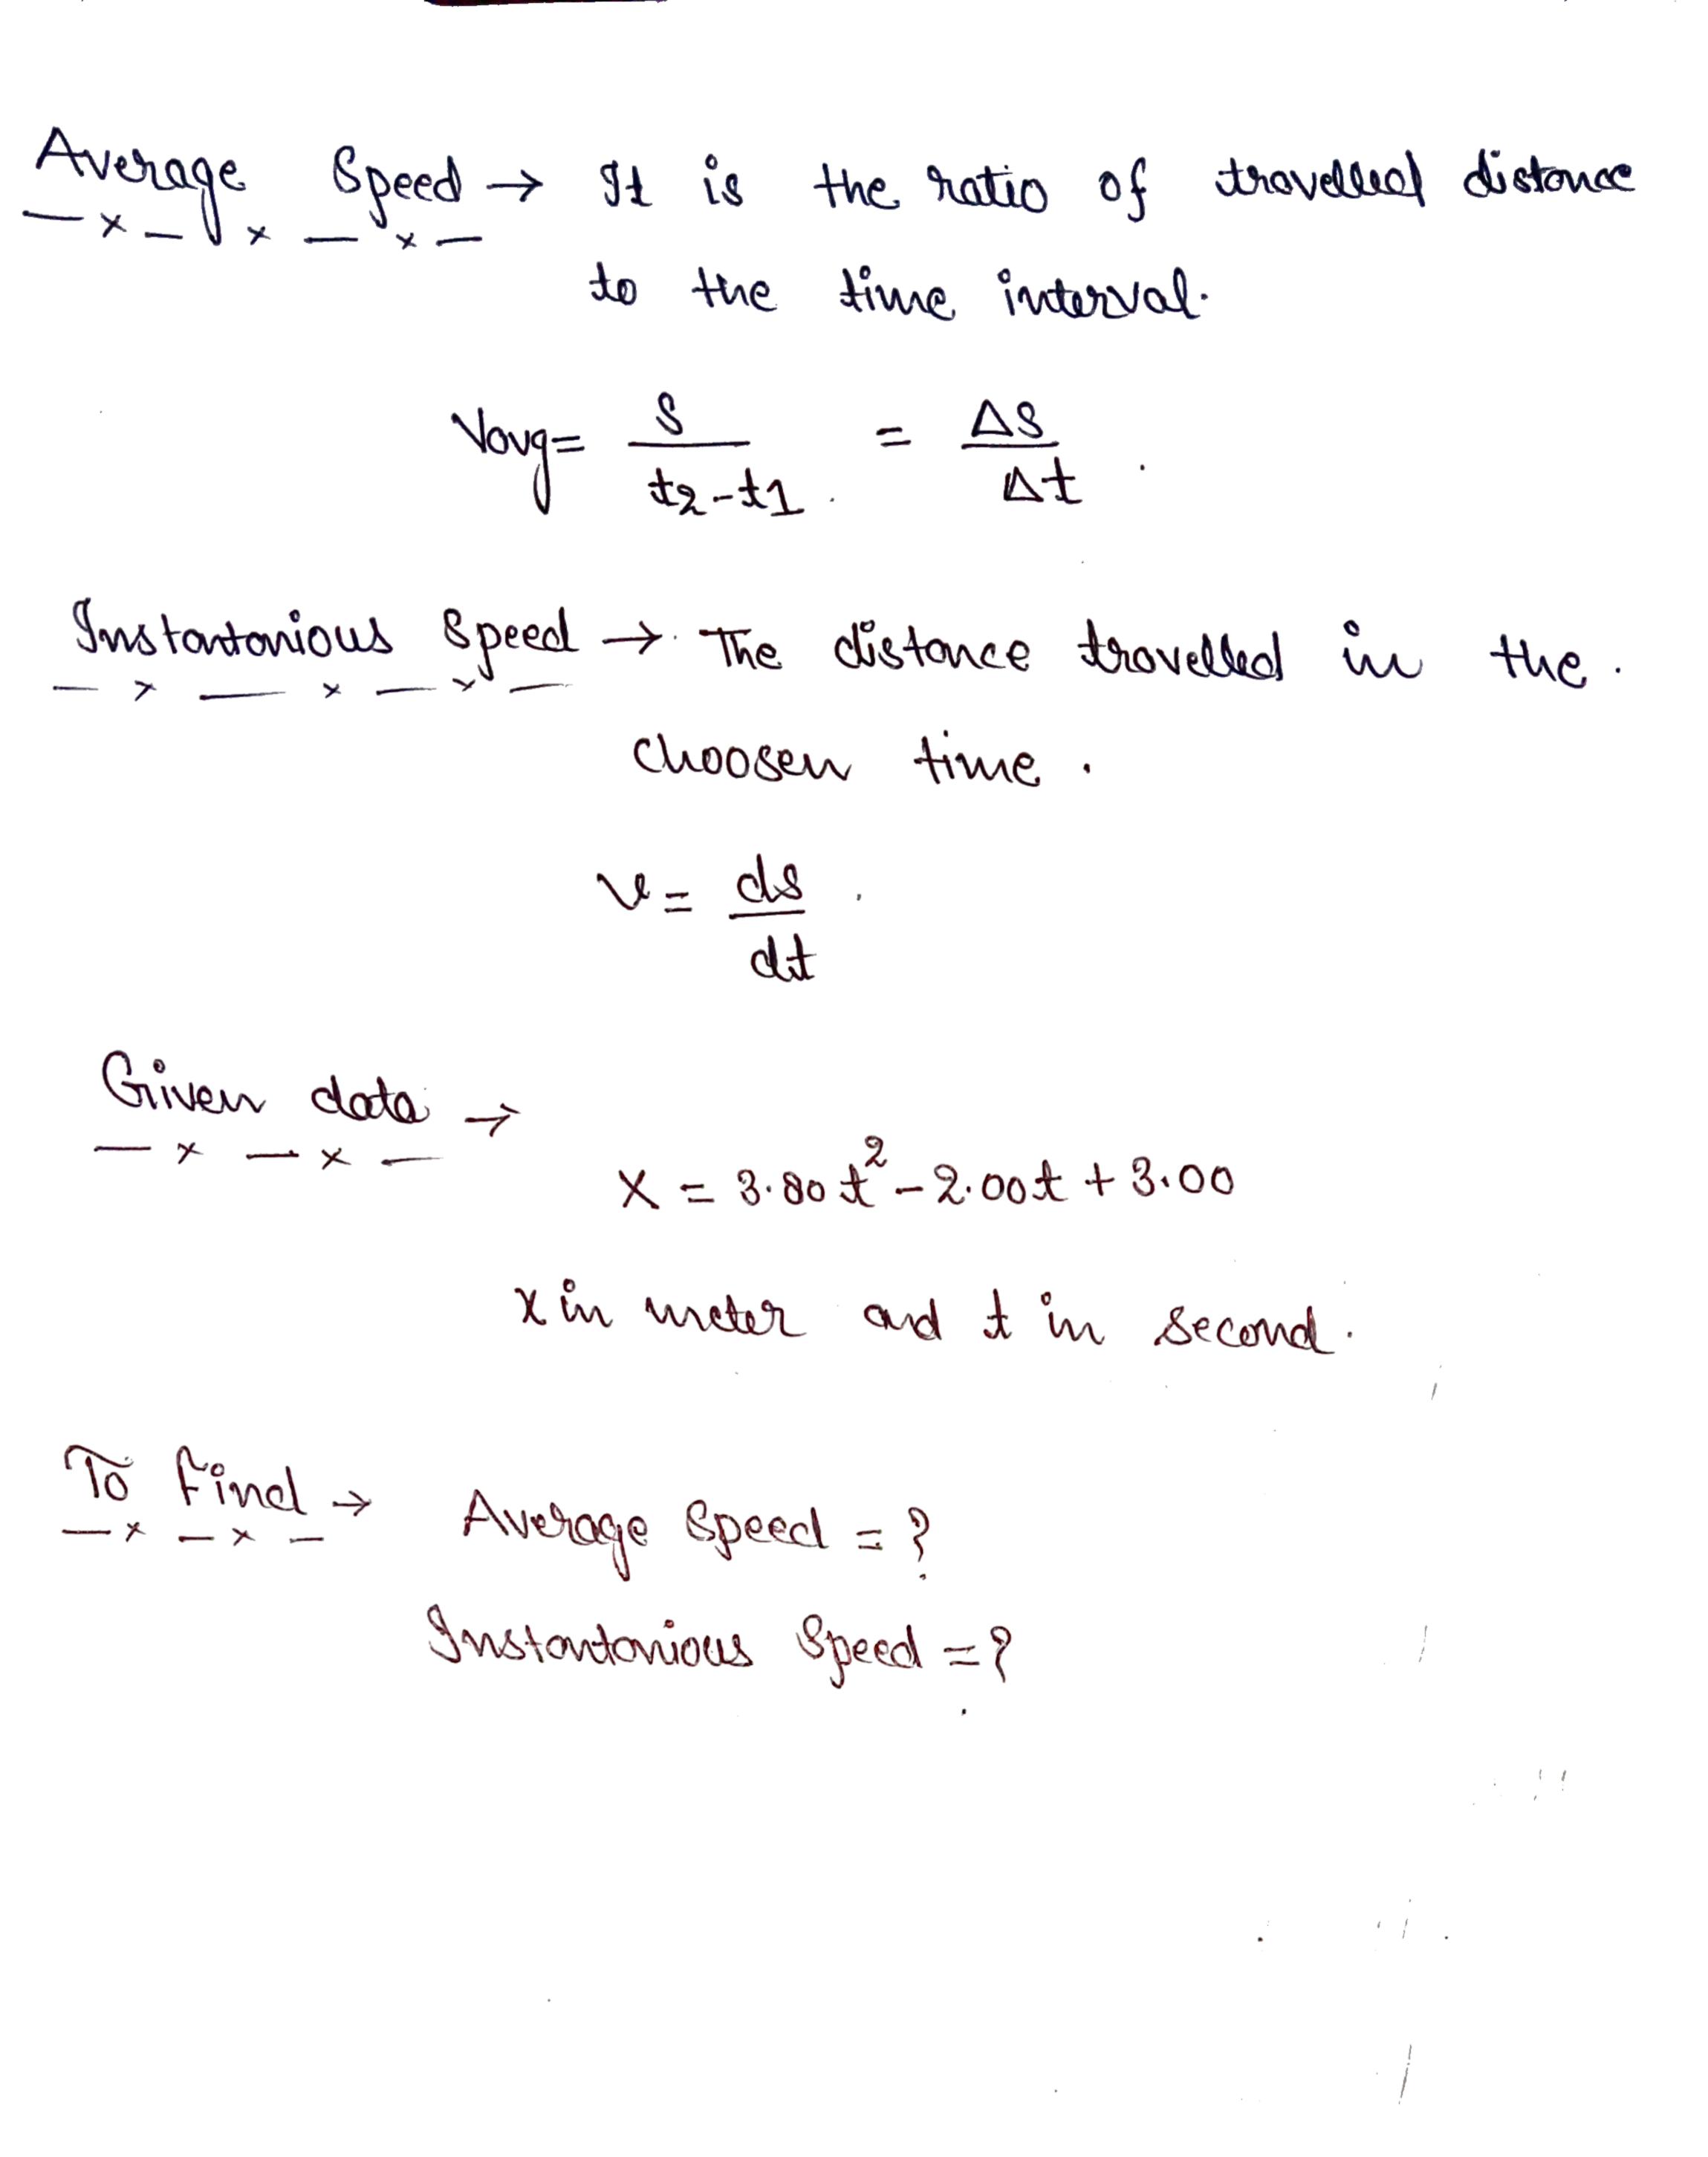 Average Speed → It is the ratio of travelled distance
to the time interval.
Vavg = S / t2-t1 = ΔS / Δt
Instantonious Speed → The distance travelled in the
choosen time.
v = ds / dt
Given data →
x = 3.80t² - 2.00t + 3.00
x in meter and t in second.
To Find → Average Speed = ?
Instantonious Speed = ?